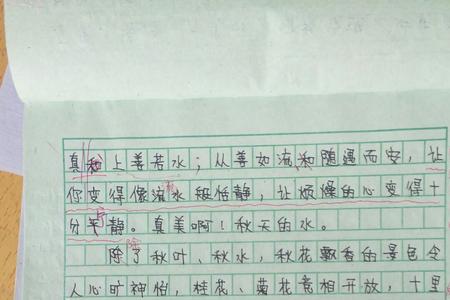 真和上善若水；从善如流和随遇而安，让
你变得像流水般恬静，让烦燥的心变得十
分平静。真美啊！秋天的水。
除了秋叶、秋水，秋花飘香的景色令
人心旷神怡，桂花、菊花竞相开放，十里